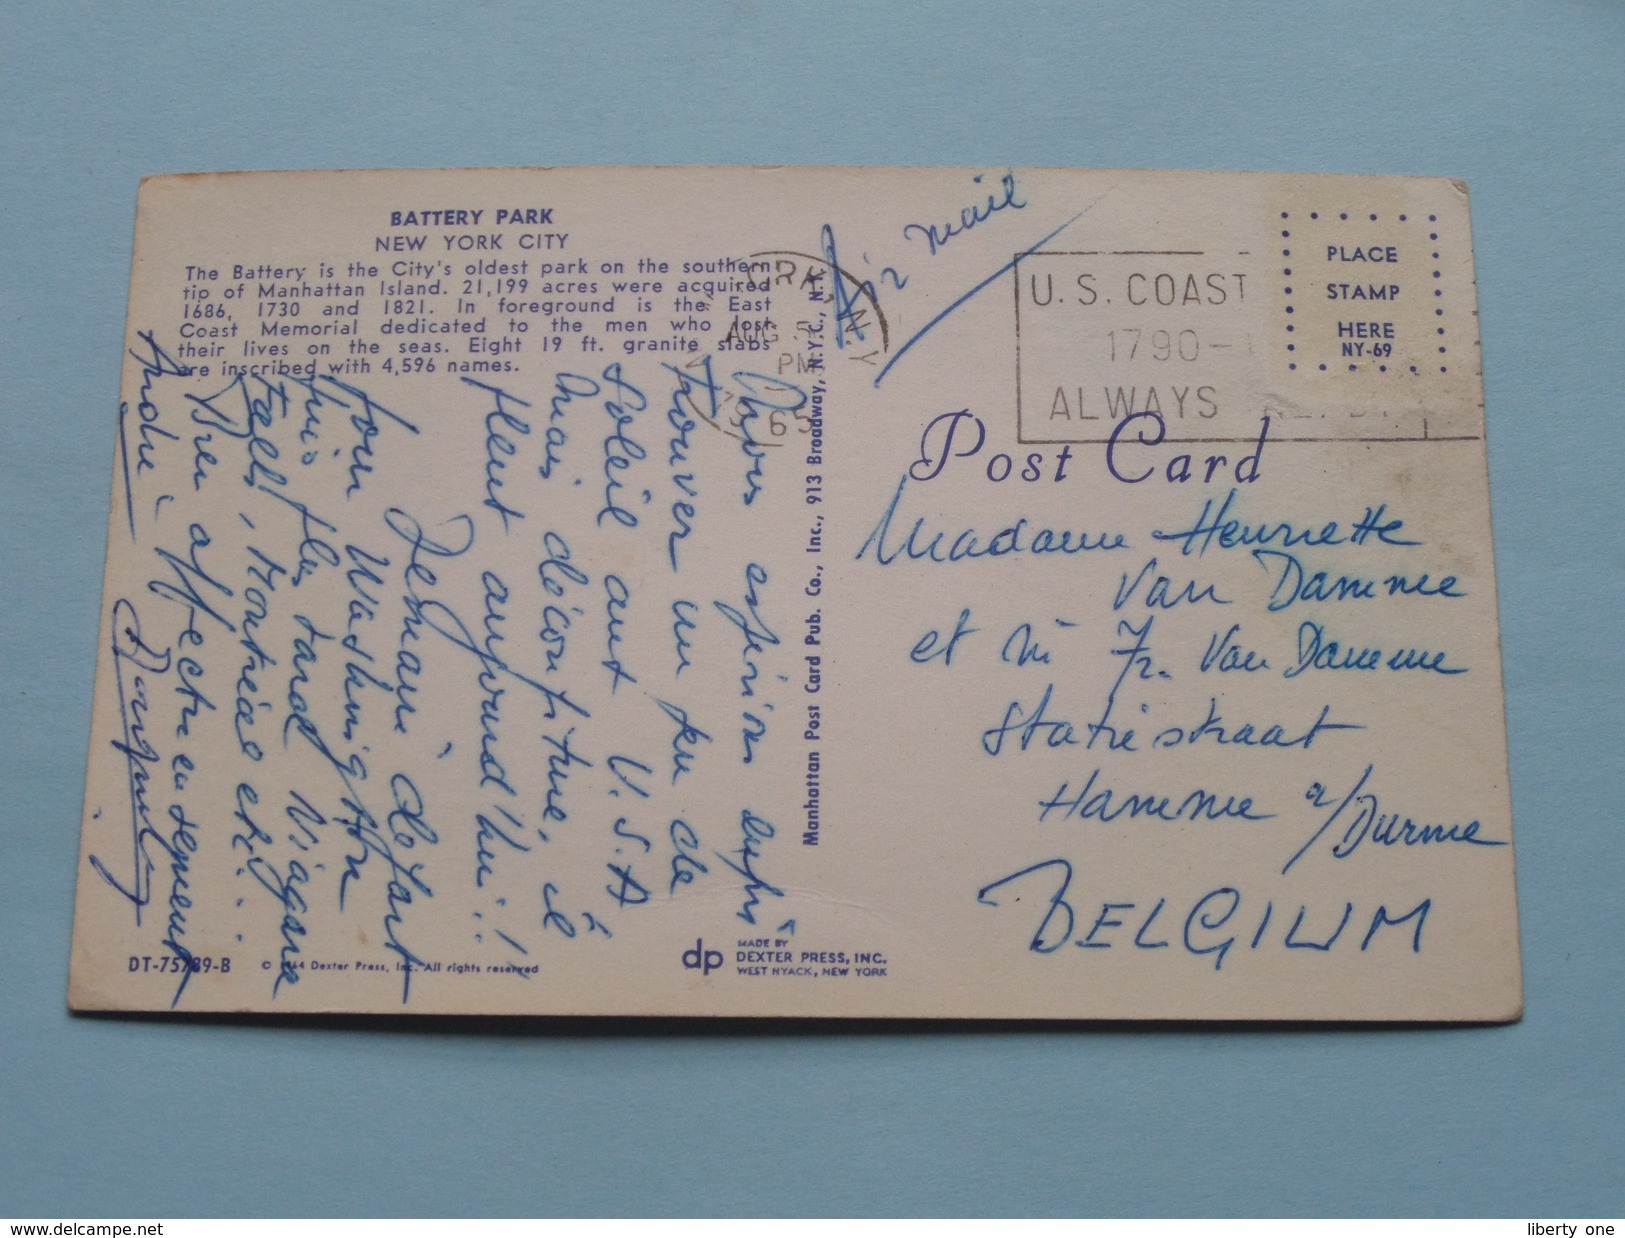 BATTERY PARK
NEW YORK CITY
The Battery is the City's oldest park on the southern
tip of Manhattan Island. 21,199 acres were acquired
1686, 1730 and 1821. In foreground is the East
Coast Memorial dedicated to the men who lost
their lives on the seas. Eight 19 ft. granite slabs
are inscribed with 4,596 names.
Nous espérions enfin
trouver un peu de
Soleil aux U.S.A
Mais déconfiture, il
pleut aujourd'hui!!
Demain départ
pour Washington
puis plus tard Niagara
Falls, Montréal etc..
Bien affectueusement
André
DT-75789-B
© 1964 Dexter Press, Inc. All rights reserved
dp
MADE BY
DEXTER PRESS, INC.
WEST NYACK, NEW YORK
Manhattan Post Card Pub. Co., Inc., 913 Broadway, N.Y.C., N.Y.
ORK, N.Y
AUG
PM
1965
Air mail
U.S. COAST
1790-
ALWAYS
PLACE
STAMP
HERE
NY-69
Post Card
Madame Henriette
Van Damme
et M Fr. Van Damme
Statiestraat
Hamme a/Durme
BELGIUM
www.delcampe.net
liberty one